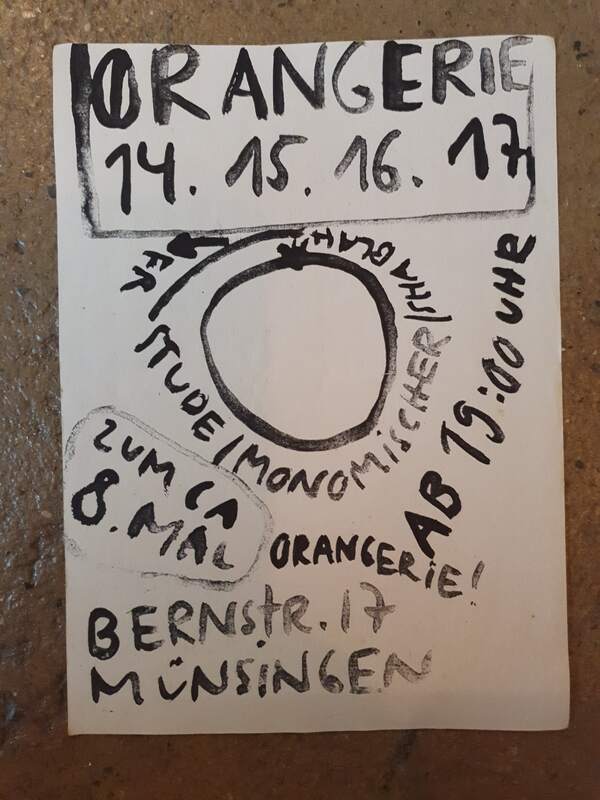 ORANGERIE
14. 15. 16. 17
ER STUDE/MONOMISCHER/SHA BLAH
AB 19:00 UHR
ZUM CA
8. MAL
ORANGERIE!
BERNSTR. 17
MÜNSINGEN